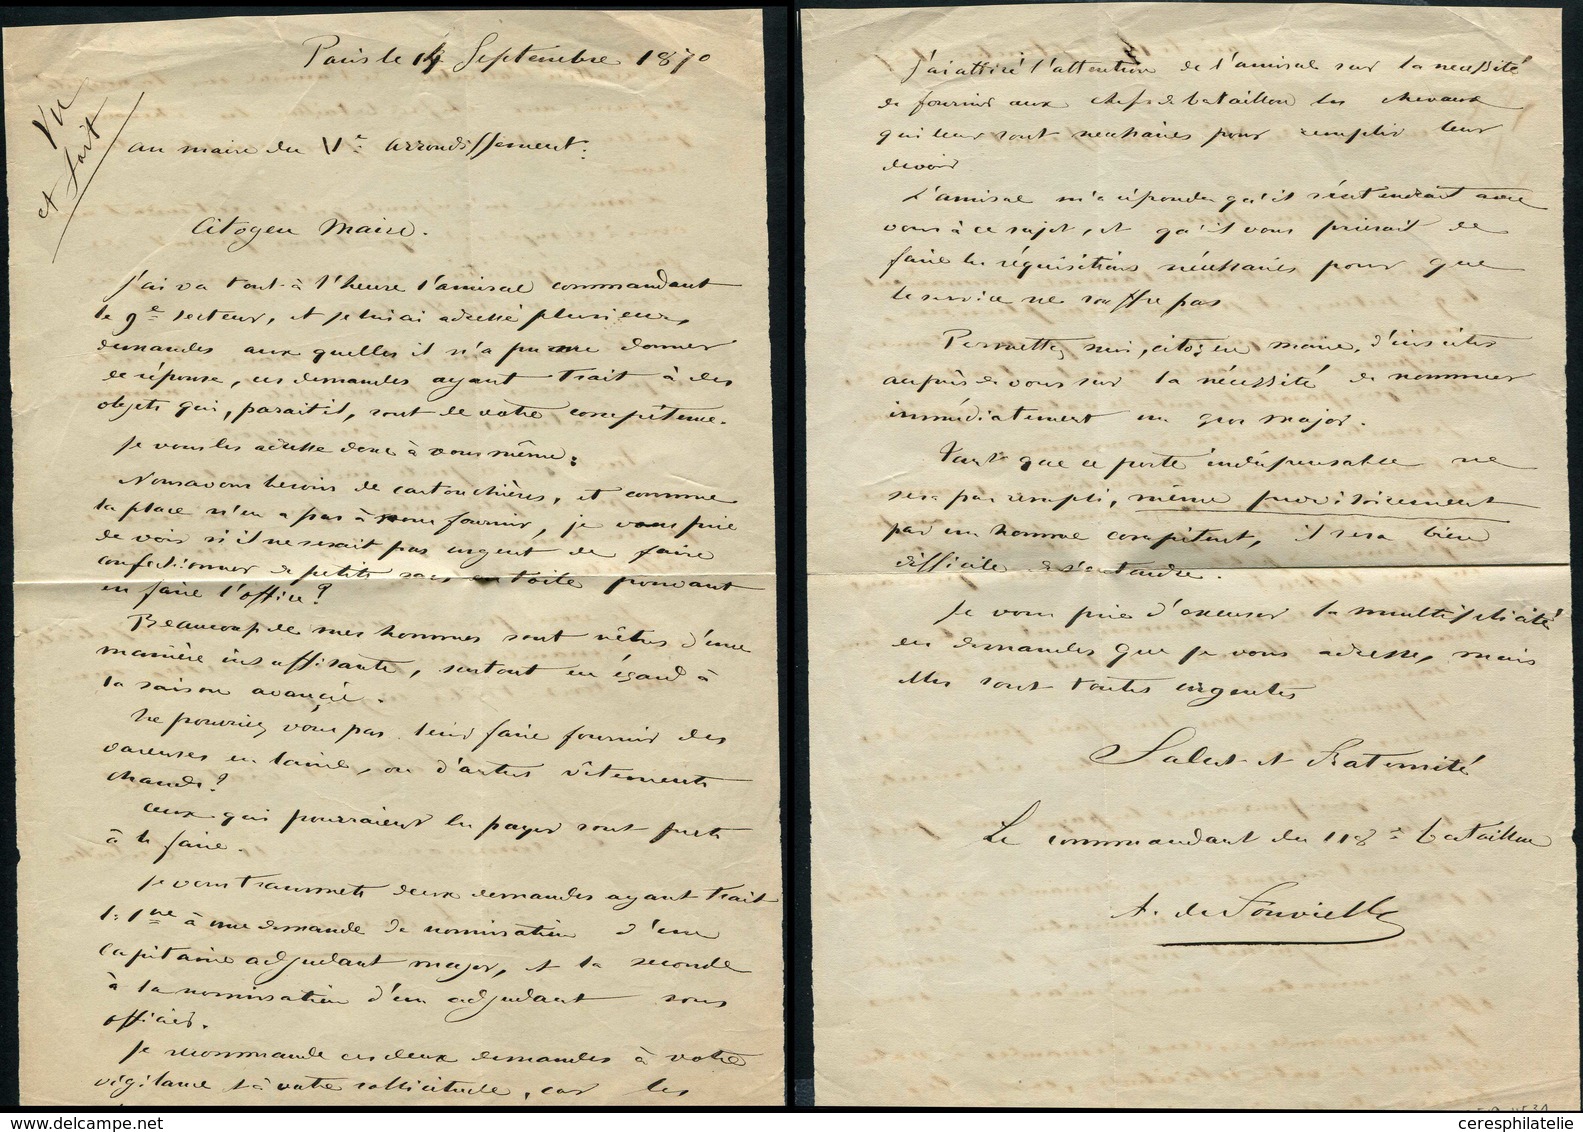 Paris le 14 Septembre 1870
Vu
et fait
au maire du Ve arrondissement:
Citoyen Maire.
J'ai vu tout-à l'heure l'amiral commandant
le 9e secteur, et je lui ai adressé plusieurs
demandes aux quelles il n'a pu me donner
de réponse, ces demandes ayant trait à des
objets qui, parait il, sont de votre compétence.
Je vous les adresse donc à vous même:
Nous avons besoin de cartouchières, et comme
la place n'en a pas à nous fournir, je vous prie
de voir s'il ne serait pas urgent de faire
confectionner de petits sacs en toile pouvant
en faire l'office?
Beaucoup de mes hommes sont vêtus d'une
manière insuffisante, surtout eu égard à
la saison avancée.
Ne pourriez vous pas leur faire fournir des
vareuses en laine, ou d'autres vêtements
chauds?
Ceux qui pourraient les payer sont prêts
à le faire.
Je vous transmets deux demandes ayant trait
la 1ère à une demande de nomination d'un
capitaine adjudant major, et la seconde
à la nomination d'un adjudant sous
officier.
Je recommande ces deux demandes à votre
vigilance et à votre sollicitude, car les
J'ai attiré l'attention de l'amiral sur la nécessité
de fournir aux chefs de bataillon les chevaux
qui leur sont nécessaires pour remplir leur
devoir
L'amiral m'a répondu qu'il s'entendrait avec
vous à ce sujet, et qu'il vous prierait de
faire les réquisitions nécessaires pour que
le service ne souffre pas
Permettez moi, citoyen maire, d'insister
auprès de vous sur la nécessité de nommer
immédiatement un gros major.
Tant que ce poste indispensable ne
sera pas rempli, même provisoirement
par un homme compétent, il sera bien
difficile de s'entendre.
Je vous prie d'excuser la multiplicité
des demandes que je vous adresse, mais
elles sont toutes urgentes
Salut et Fraternité
Le commandant du 118e bataillon
A. de Fonvielle
ceresphilatelie